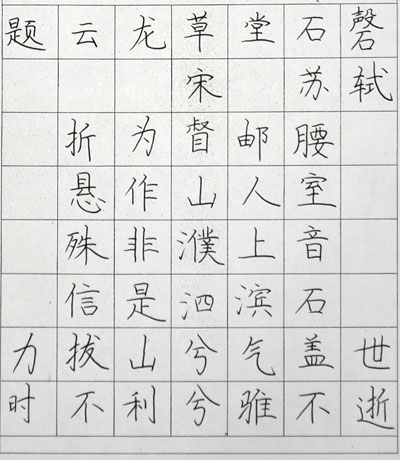 题云龙草堂石磬
宋苏轼
折为督邮腰
悬作山人室
殊非濮上音
信是泗滨石
力拔山兮气盖世
时不利兮骓不逝